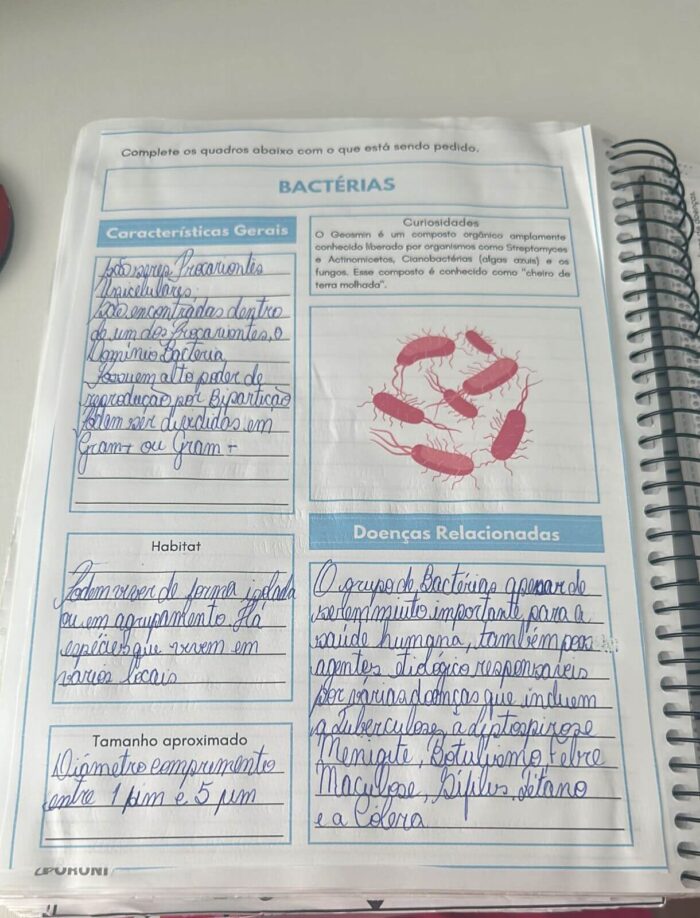 Complete os quadros abaixo com o que está sendo pedido.
BACTÉRIAS
Características Gerais
São seres Procariontes
Unicelulares;
São encontradas dentro
de um dos Procariontes, o
Domínio Bacteria
Possuem alto poder de
reprodução por Bipartição
Podem ser divididas em
Gram+ ou Gram -
Curiosidades
O Geosmin é um composto orgânico amplamente
conhecido liberado por organismos como Streptomyces
e Actinomicetos, Cianobactérias (algas azuis) e os
fungos. Esse composto é conhecido como "cheiro de
terra molhada".
Habitat
Podem viver de forma isolada
ou em agrupamento. Há
espécies que vivem em
varios locais
Tamanho aproximado
Diámetro comprimento
entre 1 µm e 5 µm
Doenças Relacionadas
O grupo de Bactérias apesar de
serem muito importante para a
saúde humana, também
agentes etiológico responsáveis
por varias doenças que incluem
a tuberculose, a leptospirose
Menigite, Botulismo, Febre
Maculose, Sífilis, tétano
e a Cólera